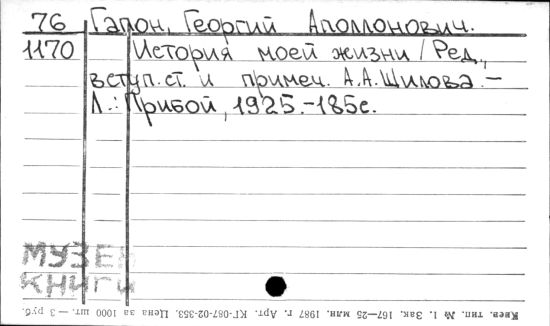 76 Гапон, Георгий Аполлонович.
1170 История моей жизни / Ред.,
вступ. ст. и примеч. А.А.Шилова. –
Л.: Прибой, 1925. – 185с.
МУЗЕЙ
КНИГИ
Киев. тип. № 1. Зак. 167—25 млн. 1987 г. Арт. КГ-087-02-353. Цена за 1000 шт. — 3 руб.